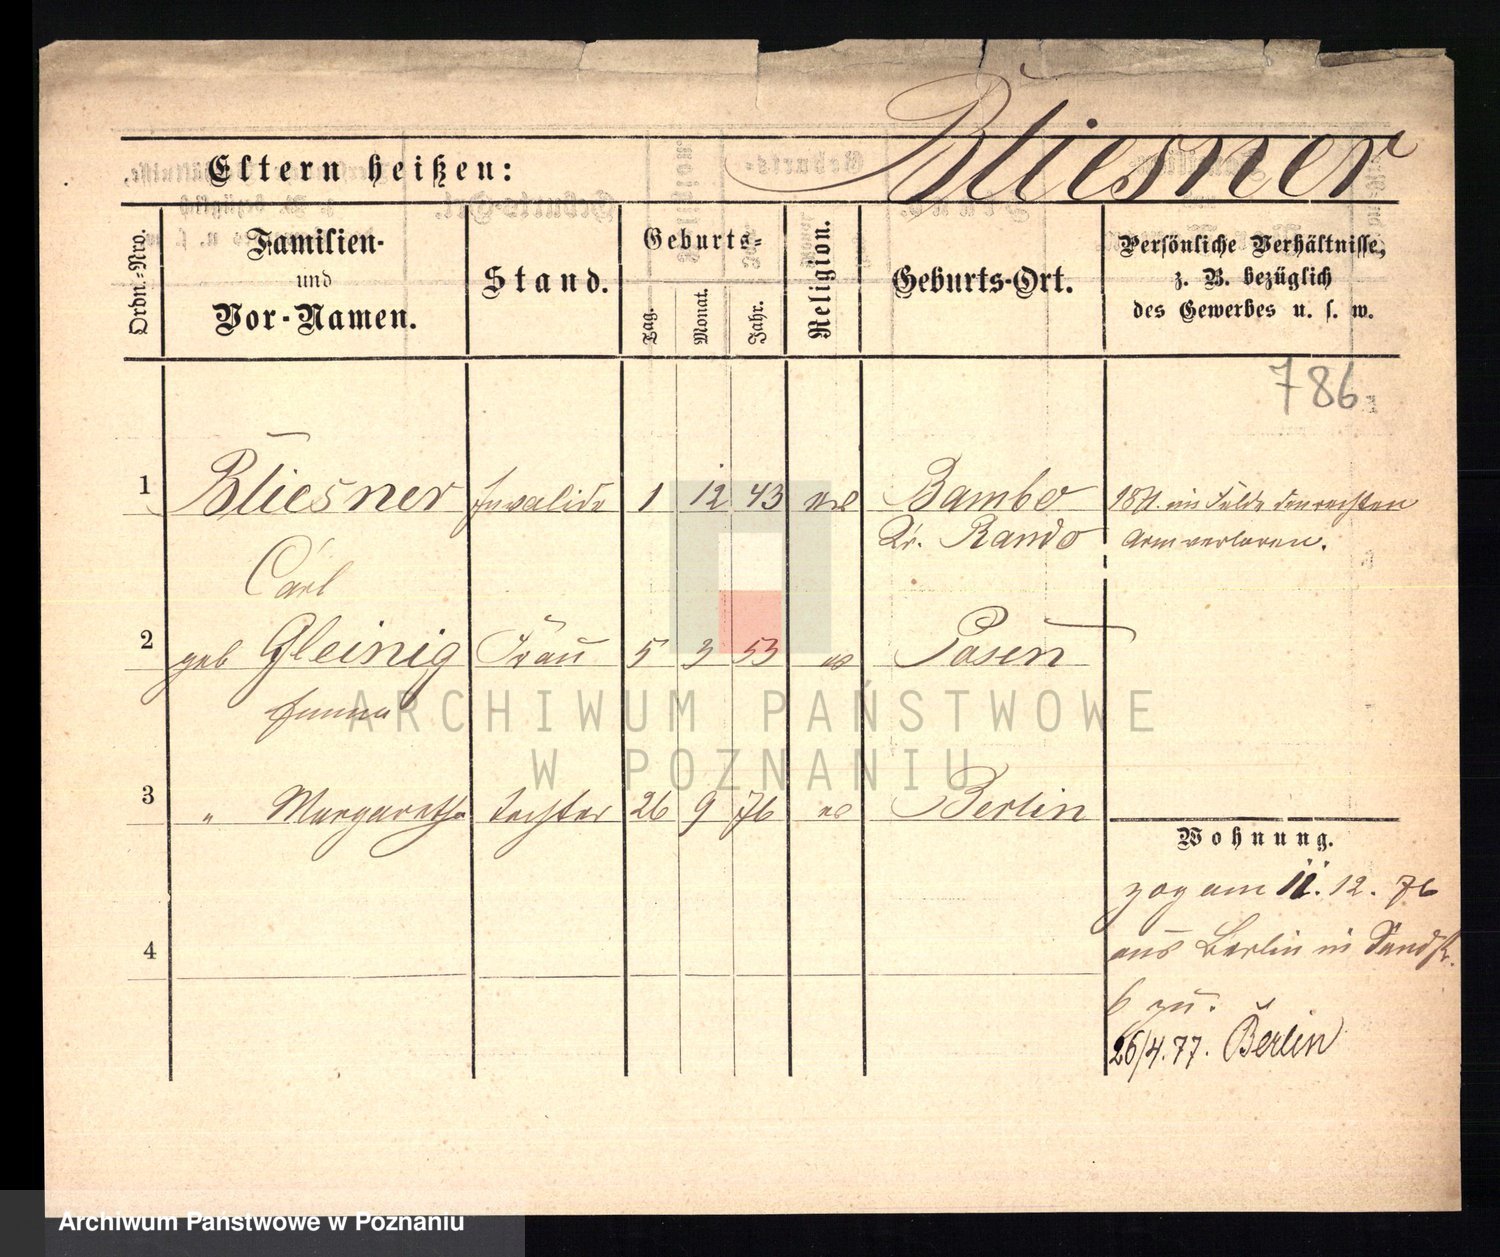 Bliesner
Eltern heißen:
Ordn.-Nro.
Familien-
und
Vor-Namen.
Stand.
Geburts-
Tag.
Monat.
Jahr.
Religion.
Geburts-Ort.
Persönliche Verhältnisse,
z. B. bezüglich
des Gewerbes u. s. w.
786
1 Bliesner Invalide 1 12 43 Bambo 1871. im Felde den rechten
Kr. Rando Arm verloren.
Carl
2 geb Gleinig Frau 5 3 53 Posen
Emma
3 " Margarethe Tochter 26 9 76 Berlin
4
Wohnung.
zog am 11. 12. 76
aus Berlin in Sandstr.
6 zu.
26/4.77. Berlin
ARCHIWUM PAŃSTWOWE
W POZNANIU
Archiwum Państwowe w Poznaniu